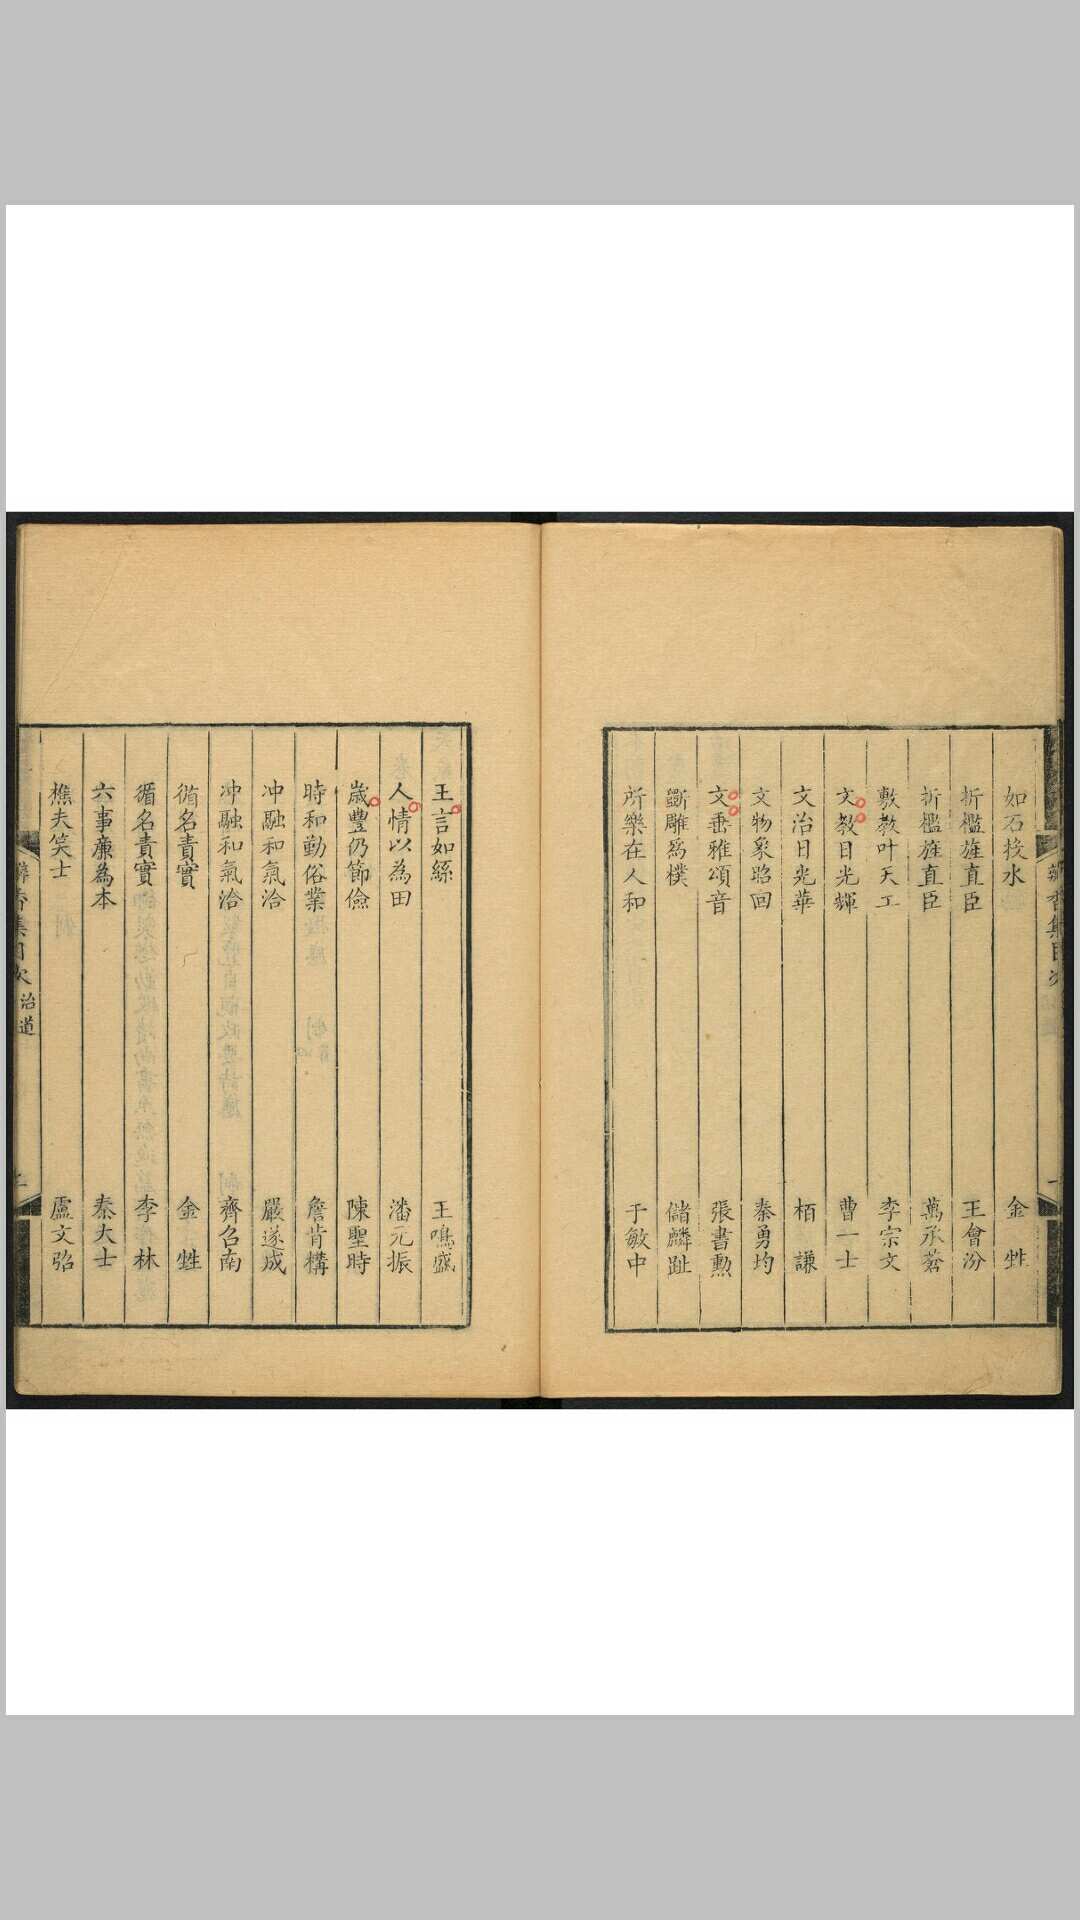 如石投水 金甡
折檻旌直臣 王會汾
折檻旌直臣 萬承蒼
敷教叶天工 李宗文
文教日光輝 曹一士
文治日光華 栢謙
文物象昭回 秦勇均
文垂雅頌音 張書勲
斵雕爲樸 儲麟趾
所樂在人和 于敏中
王言如絲 王鳴盛
人情以為田 潘元振
歲豐仍節儉 陳聖時
時和勤俗業 詹肯構
冲融和氣洽 嚴遂成
冲融和氣洽 齊召南
循名責實 金甡
循名責實 李林
六事廉為本 秦大士
樵夫笑士 盧文弨
集目次 治道